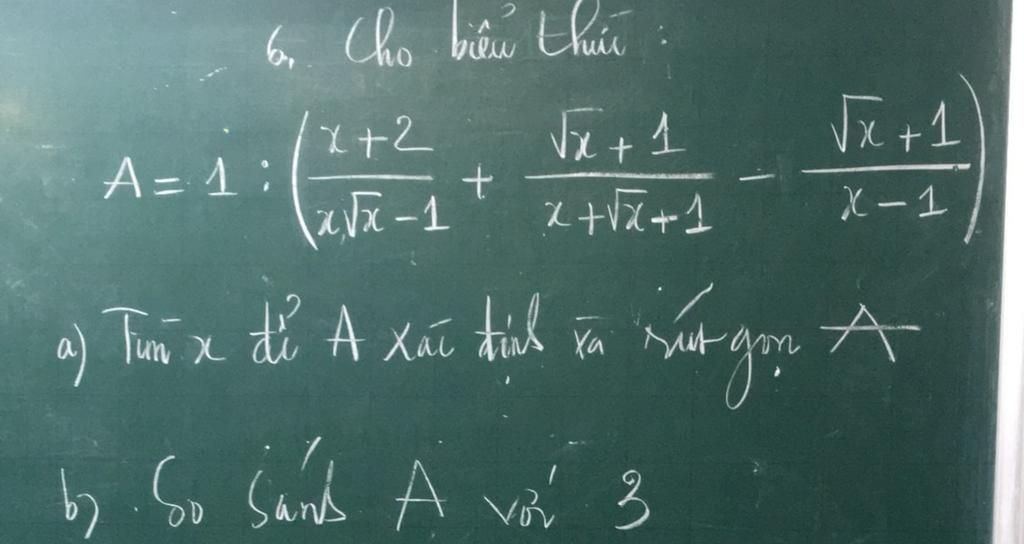 6, Cho biểu thức :
A = 1 : ( (x+2)/(x√x -1) + (√x + 1)/(x+√x+1) - (√x + 1)/(x-1) )
a) Tìm x để A xác định và rút gọn A
b) So sánh A với 3